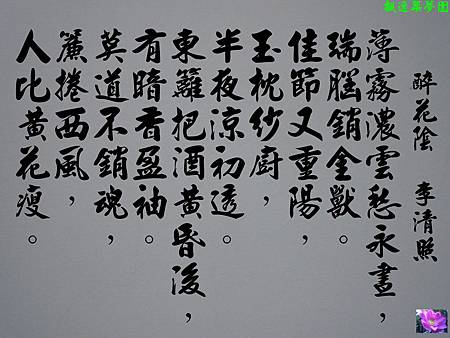 飄逸築夢園
醉花陰 李清照
薄霧濃雲愁永晝，
瑞腦銷金獸。
佳節又重陽，
玉枕紗廚，
半夜涼初透。
東籬把酒黃昏後，
有暗香盈袖。
莫道不銷魂，
簾捲西風，
人比黃花瘦。